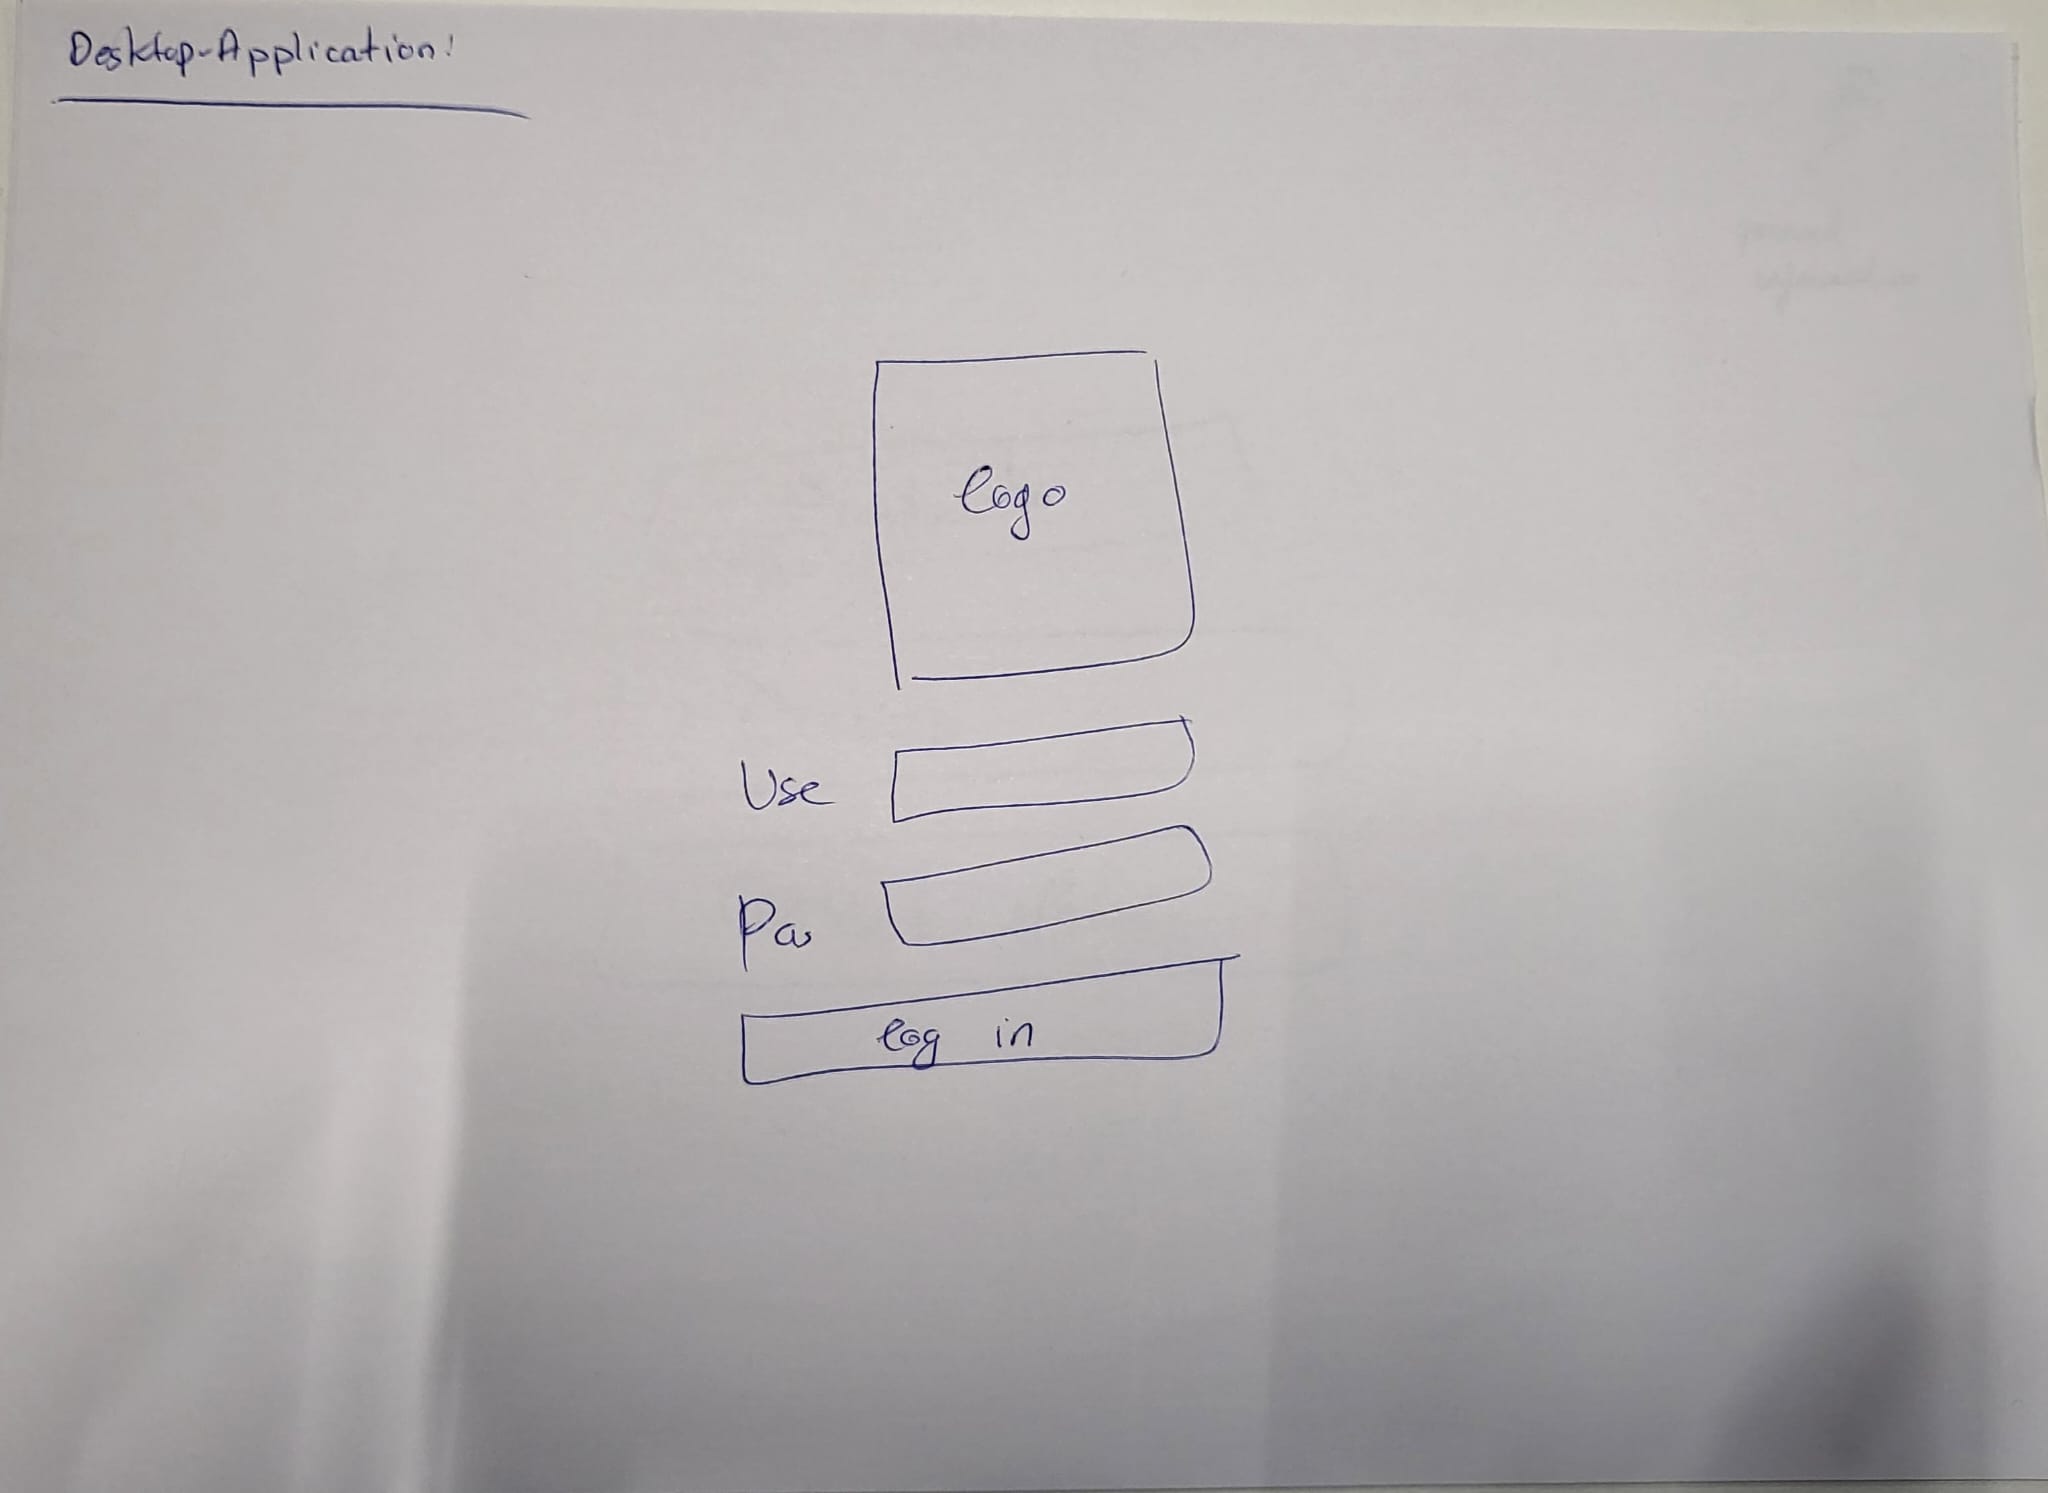 Desktop-Application!
logo
Use
Pa
log in